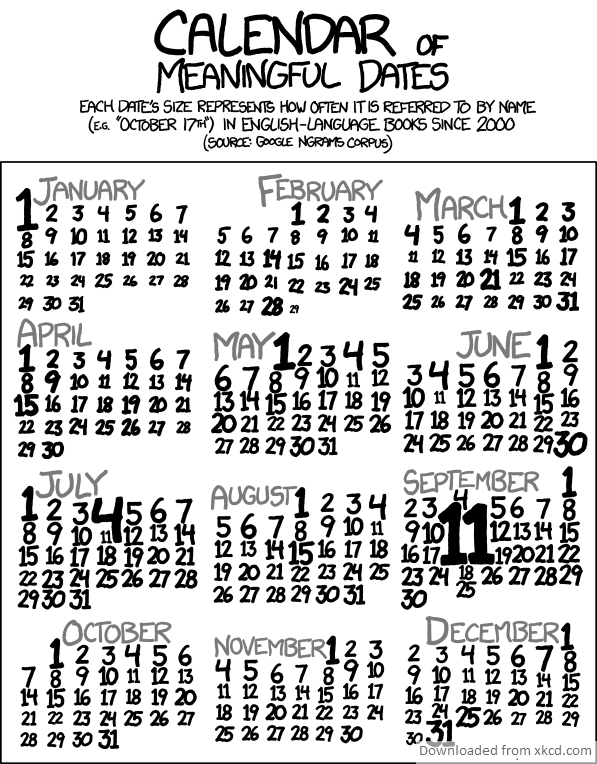 CALENDAR OF
MEANINGFUL DATES
EACH DATE'S SIZE REPRESENTS HOW OFTEN IT IS REFERRED TO BY NAME
(E.G. "OCTOBER 17TH") IN ENGLISH-LANGUAGE BOOKS SINCE 2000
(SOURCE: GOOGLE NGRAMS CORPUS)
JANUARY
1 2 3 4 5 6 7
8 9 10 11 12 13 14
15 16 17 18 19 20 21
22 23 24 25 26 27 28
29 30 31
FEBRUARY
1 2 3 4
5 6 7 8 9 10 11
12 13 14 15 16 17 18
19 20 21 22 23 24 25
26 27 28 29
MARCH 1 2 3
4 5 6 7 8 9 10
11 12 13 14 15 16 17
18 19 20 21 22 23 24
25 26 27 28 29 30 31
APRIL
1 2 3 4 5 6 7
8 9 10 11 12 13 14
15 16 17 18 19 20 21
22 23 24 25 26 27 28
29 30
MAY 1 2 3 4 5
6 7 8 9 10 11 12
13 14 15 16 17 18 19
20 21 22 23 24 25 26
27 28 29 30 31
JUNE 1 2
3 4 5 6 7 8 9
10 11 12 13 14 15 16
17 18 19 20 21 22 23
24 25 26 27 28 29 30
JULY
1 2 3 4 5 6 7
8 9 10 11 12 13 14
15 16 17 18 19 20 21
22 23 24 25 26 27 28
29 30 31
AUGUST 1 2 3 4
5 6 7 8 9 10 11
12 13 14 15 16 17 18
19 20 21 22 23 24 25
26 27 28 29 30 31
SEPTEMBER 1
2 3 4 5 6 7 8
9 10 11 12 13 14 15
16 17 18 19 20 21 22
23 24 25 26 27 28 29
30
OCTOBER
1 2 3 4 5 6
7 8 9 10 11 12 13
14 15 16 17 18 19 20
21 22 23 24 25 26 27
28 29 30 31
NOVEMBER 1 2 3
4 5 6 7 8 9 10
11 12 13 14 15 16 17
18 19 20 21 22 23 24
25 26 27 28 29 30
DECEMBER 1
2 3 4 5 6 7 8
9 10 11 12 13 14 15
16 17 18 19 20 21 22
23 24 25 26 27 28 29
30 31
Downloaded from xkcd.com